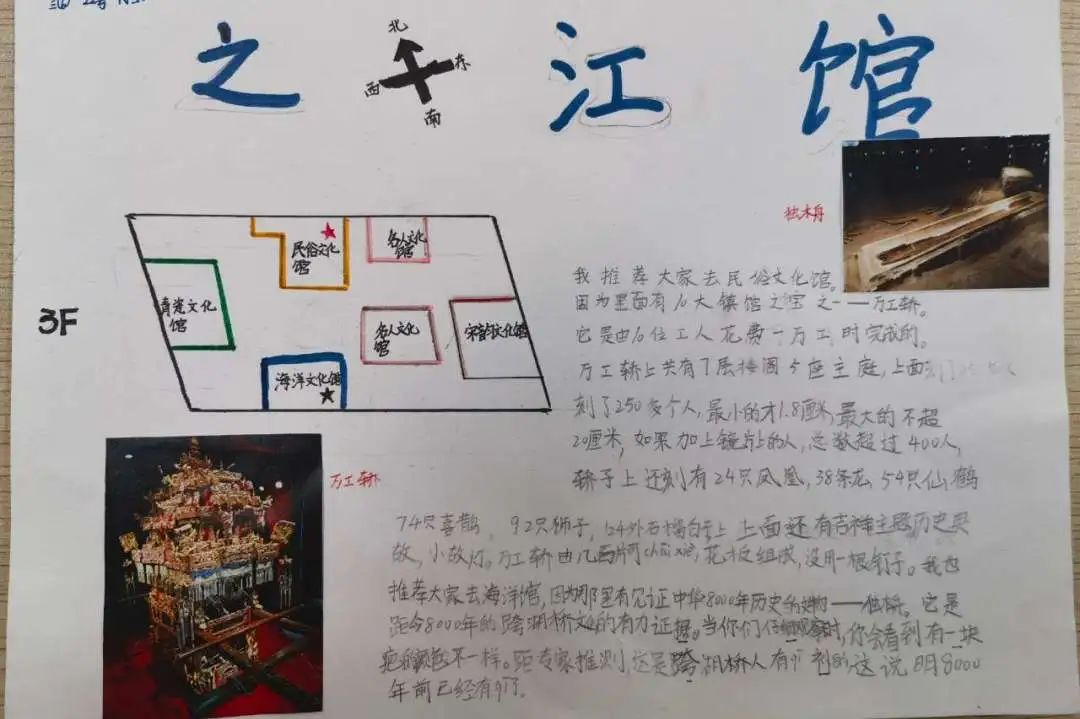 之江馆
北
东
西
南
独木舟
3F
民俗文化馆
名人文化馆
青瓷文化馆
名人文化馆
宋韵文化馆
海洋文化馆
万工轿
我推荐大家去民俗文化馆。
因为里面有10大镇馆之宝之一——万工轿。
它是由10位工人花费一万工时完成的。
万工轿上共有7层楼阁5座主庭,上面
刻了250多个人,最小的才1.8厘米,最大的不超
20厘米,如果加上镜片上的人,总数超过400人,
轿子上还刻有24只凤凰,38条龙,54只仙鹤
74只喜鹊,92只狮子,124处石榴百 上面还有吉祥主题历史典
故,小故 。万工轿由几百 chā xiē,花板组成,没用一根钉子。我也
推荐大家去海洋馆,因为那里有见证中华8000年历史 ——独 。它是
距今8000年的跨湖桥文化的有力证据。当你们仔细观察时,你会看到有一块
疤 颜色不一样。距专家推测,这是跨湖桥人 的这说明8000
年前已经有